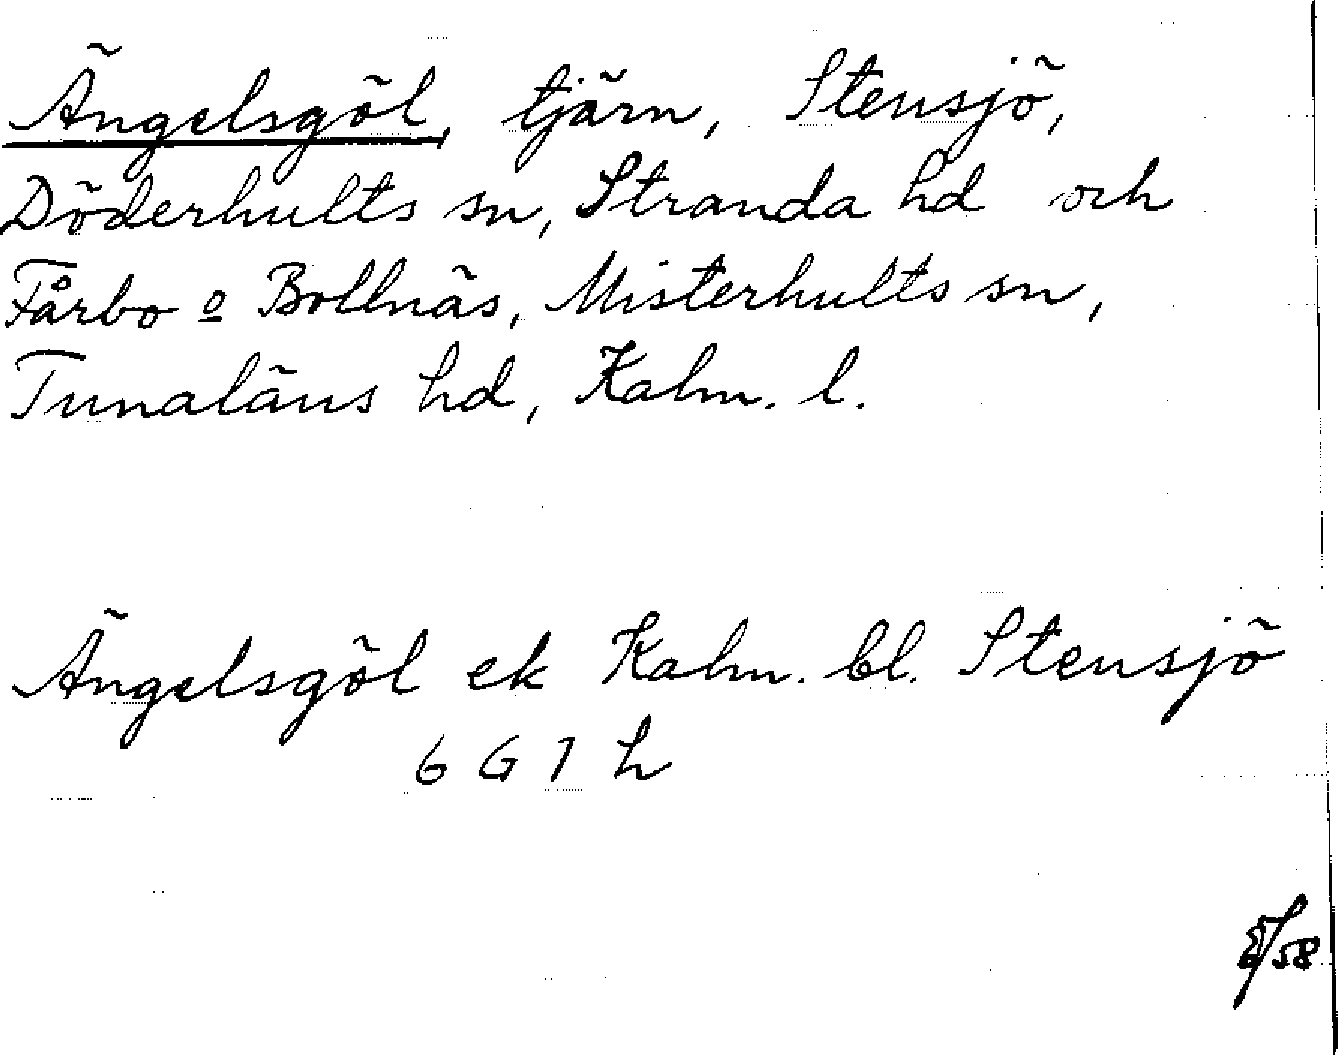 Ängelsgöl, tjärn, Stensjö,
Döderhults sn, Stranda hd och
Fårbo o Bollnäs, Misterhults sn,
Tunaläns hd, Kalm. l.
Ängelsgöl ek Kalm. bl. Stensjö
6 G 1 h
/58